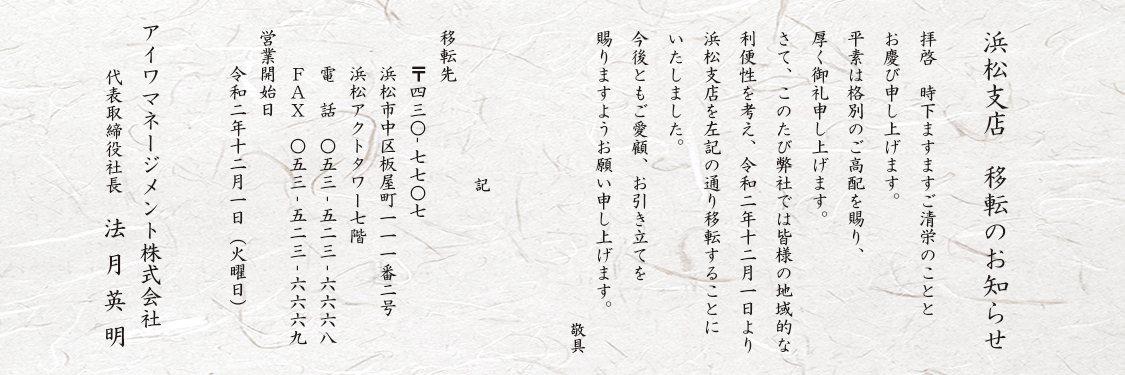 浜松支店　移転のお知らせ
拝啓　時下ますますご清栄のことと
お慶び申し上げます。
平素は格別のご高配を賜り、
厚く御礼申し上げます。
さて、このたび弊社では皆様の地域的な
利便性を考え、令和二年十二月一日より
浜松支店を左記の通り移転することに
いたしました。
今後ともご愛顧、お引き立てを
賜りますようお願い申し上げます。
敬具
記
移転先
〒四三〇-七七〇七
浜松市中区板屋町一一一番二号
浜松アクトタワー七階
電　話　〇五三-五二三-六六六八
ＦＡＸ　〇五三-五二三-六六六九
営業開始日
令和二年十二月一日（火曜日）
アイワマネージメント株式会社
代表取締役社長　法月英明